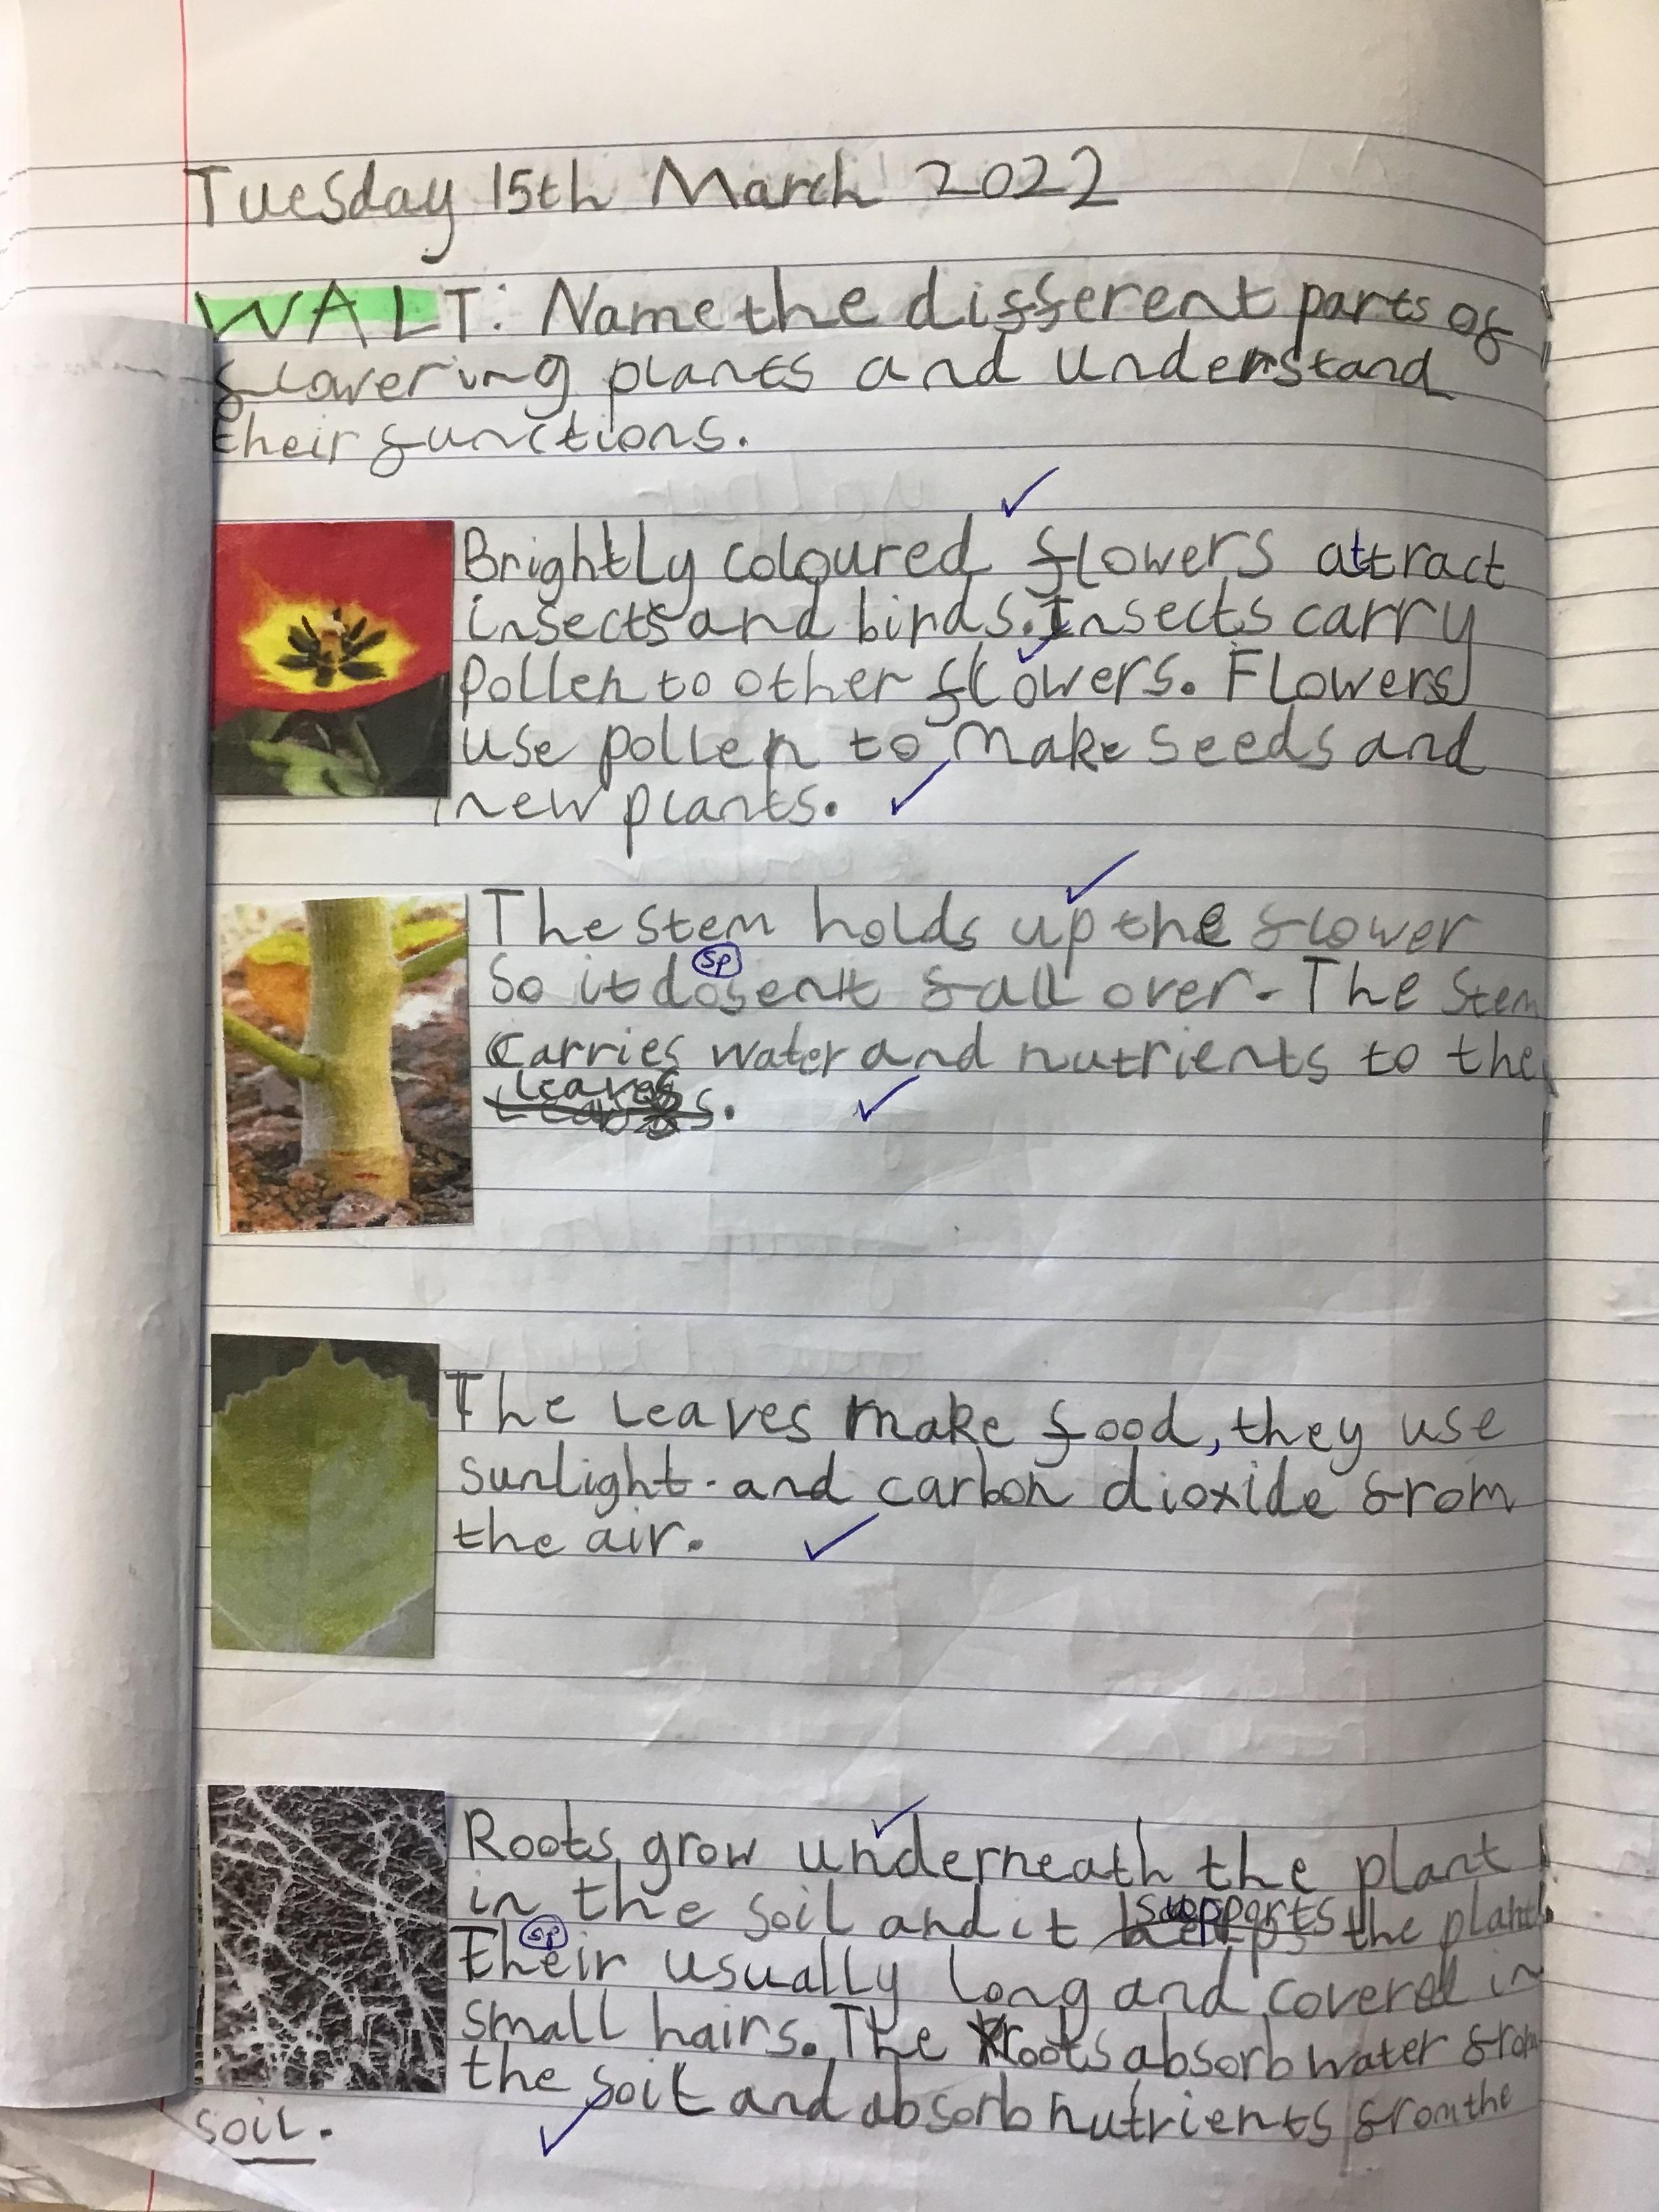 Tuesday 15th March 2022
WALT: Name the different parts of
flowering plants and understand
their functions.
Brightly coloured flowers attract
insects and birds. Insects carry
pollen to other flowers. Flowers
use pollen to make seeds and
new plants.
The stem holds up the flower
sp
so it dosent fall over. The stem
carries water and nutrients to the
leaves.
The leaves make food, they use
sunlight and carbon dioxide from
the air.
Roots grow underneath the plant
in the soil and it supports the plant.
sp
Their usually long and covered in
small hairs. The Roots absorb water from
the soil and absorb nutrients from the
soil.